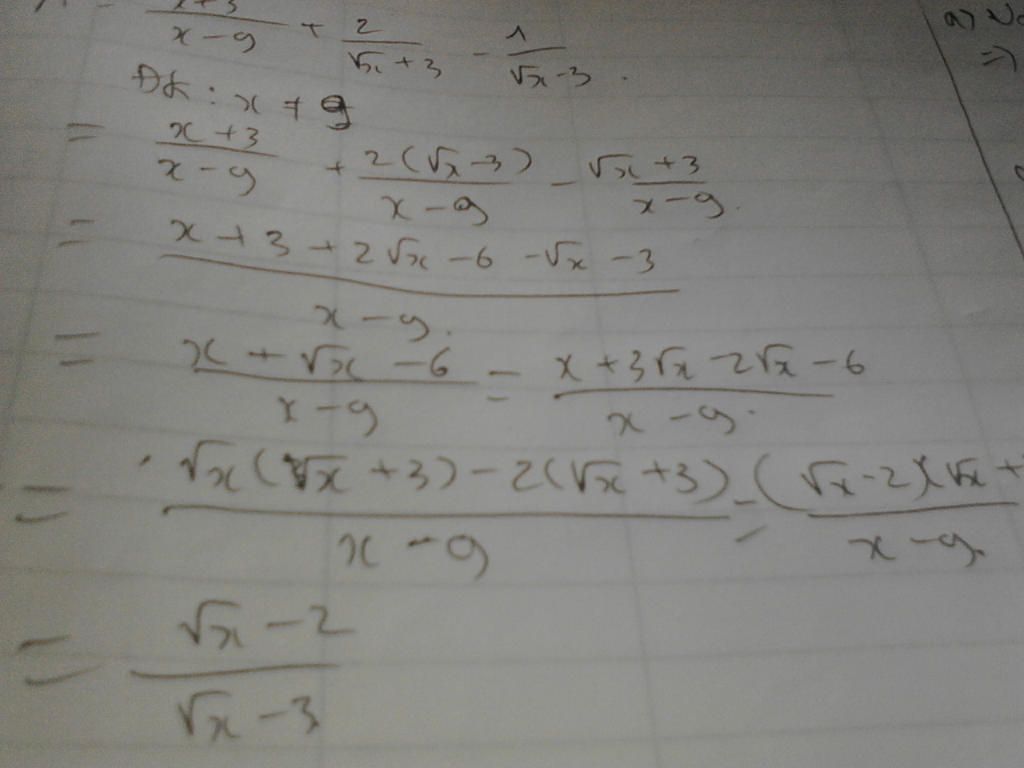 x+3/x-9 + 2/√x+3 - 1/√x-3.
a)
=>
ĐK: x ≠ 9
= x+3/x-9 + 2(√x-3)/x-9 - √x+3/x-9.
= x+3+2√x-6-√x-3/x-9.
= x+√x-6/x-9 = x+3√x-2√x-6/x-9.
= √x(√x+3)-2(√x+3)/x-9 = (√x-2)(√x+/x-9.
= √x-2/√x-3